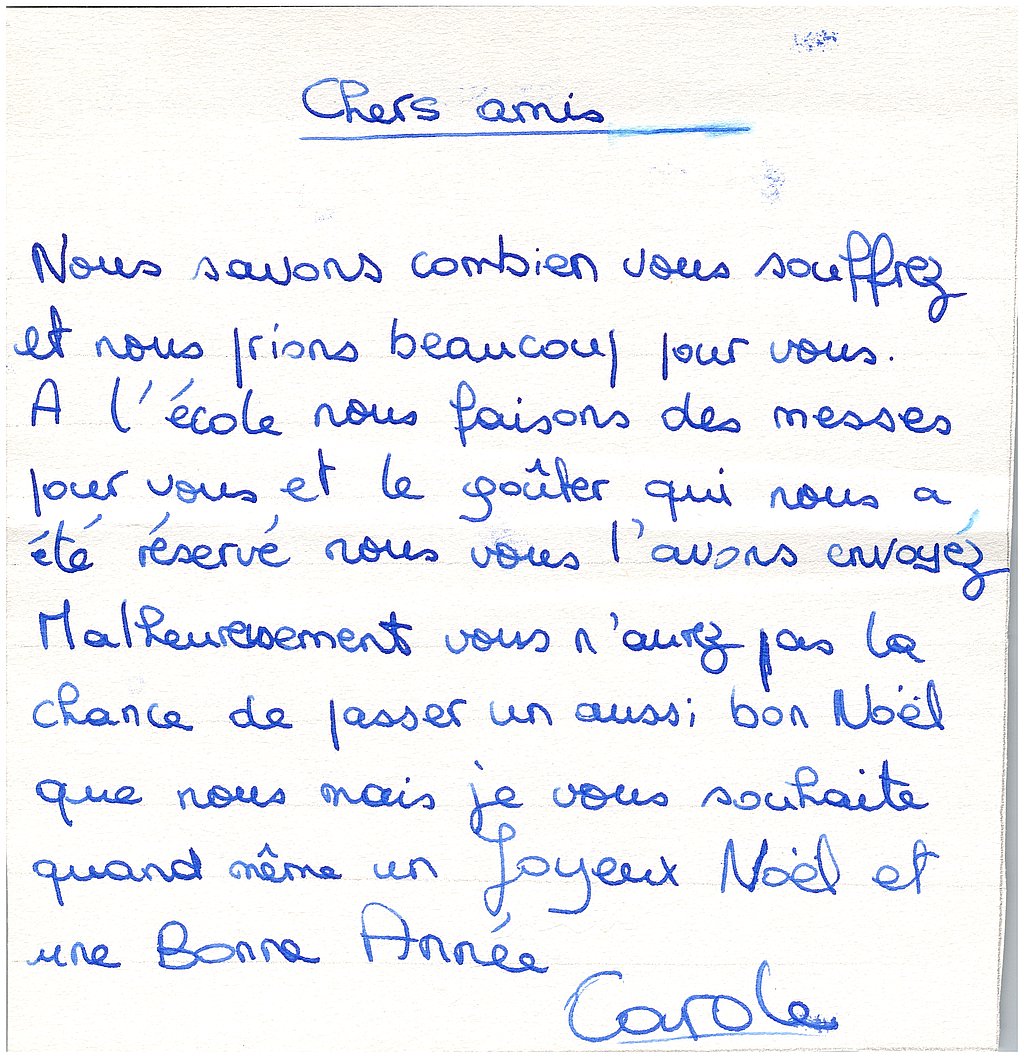 Chers amis
Nous savons combien vous souffrez
et nous prions beaucoup pour vous.
A l'école nous faisons des messes
pour vous et le goûter qui nous a
été réservé nous vous l'avons envoyéz
Malheureusement vous n'aurez pas la
chance de passer un aussi bon Noël
que nous mais je vous souhaite
quand même un Joyeux Noël et
une Bonne Année
Carole